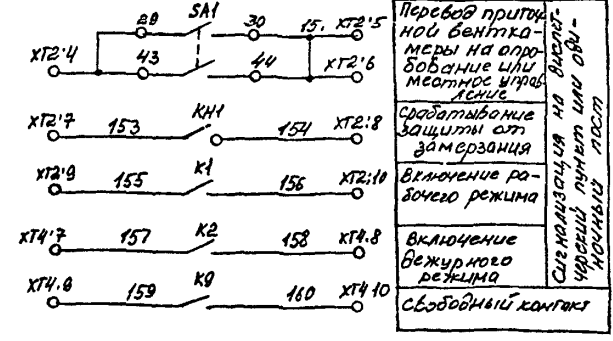 SA1
29 30 15. ХТ2:5
ХТ2:4 43 44 ХТ2:6
ХТ2:7 153 КН1 154 ХТ2:8
ХТ2:9 155 К1 156 ХТ2:10
ХТ4:7 157 К2 158 ХТ4.8
ХТ4.9 159 К9 160 ХТ4 10
Перевод приточ-
ной вентка-
меры на опро-
бование или
местное управ-
ление
Срабатывание
защиты от
замерзания
Включение ра-
бочего режима
Включение
дежурного
режима
Свободный контакт
Сигнализация на диспет-
черский пункт или оди-
ночный пост